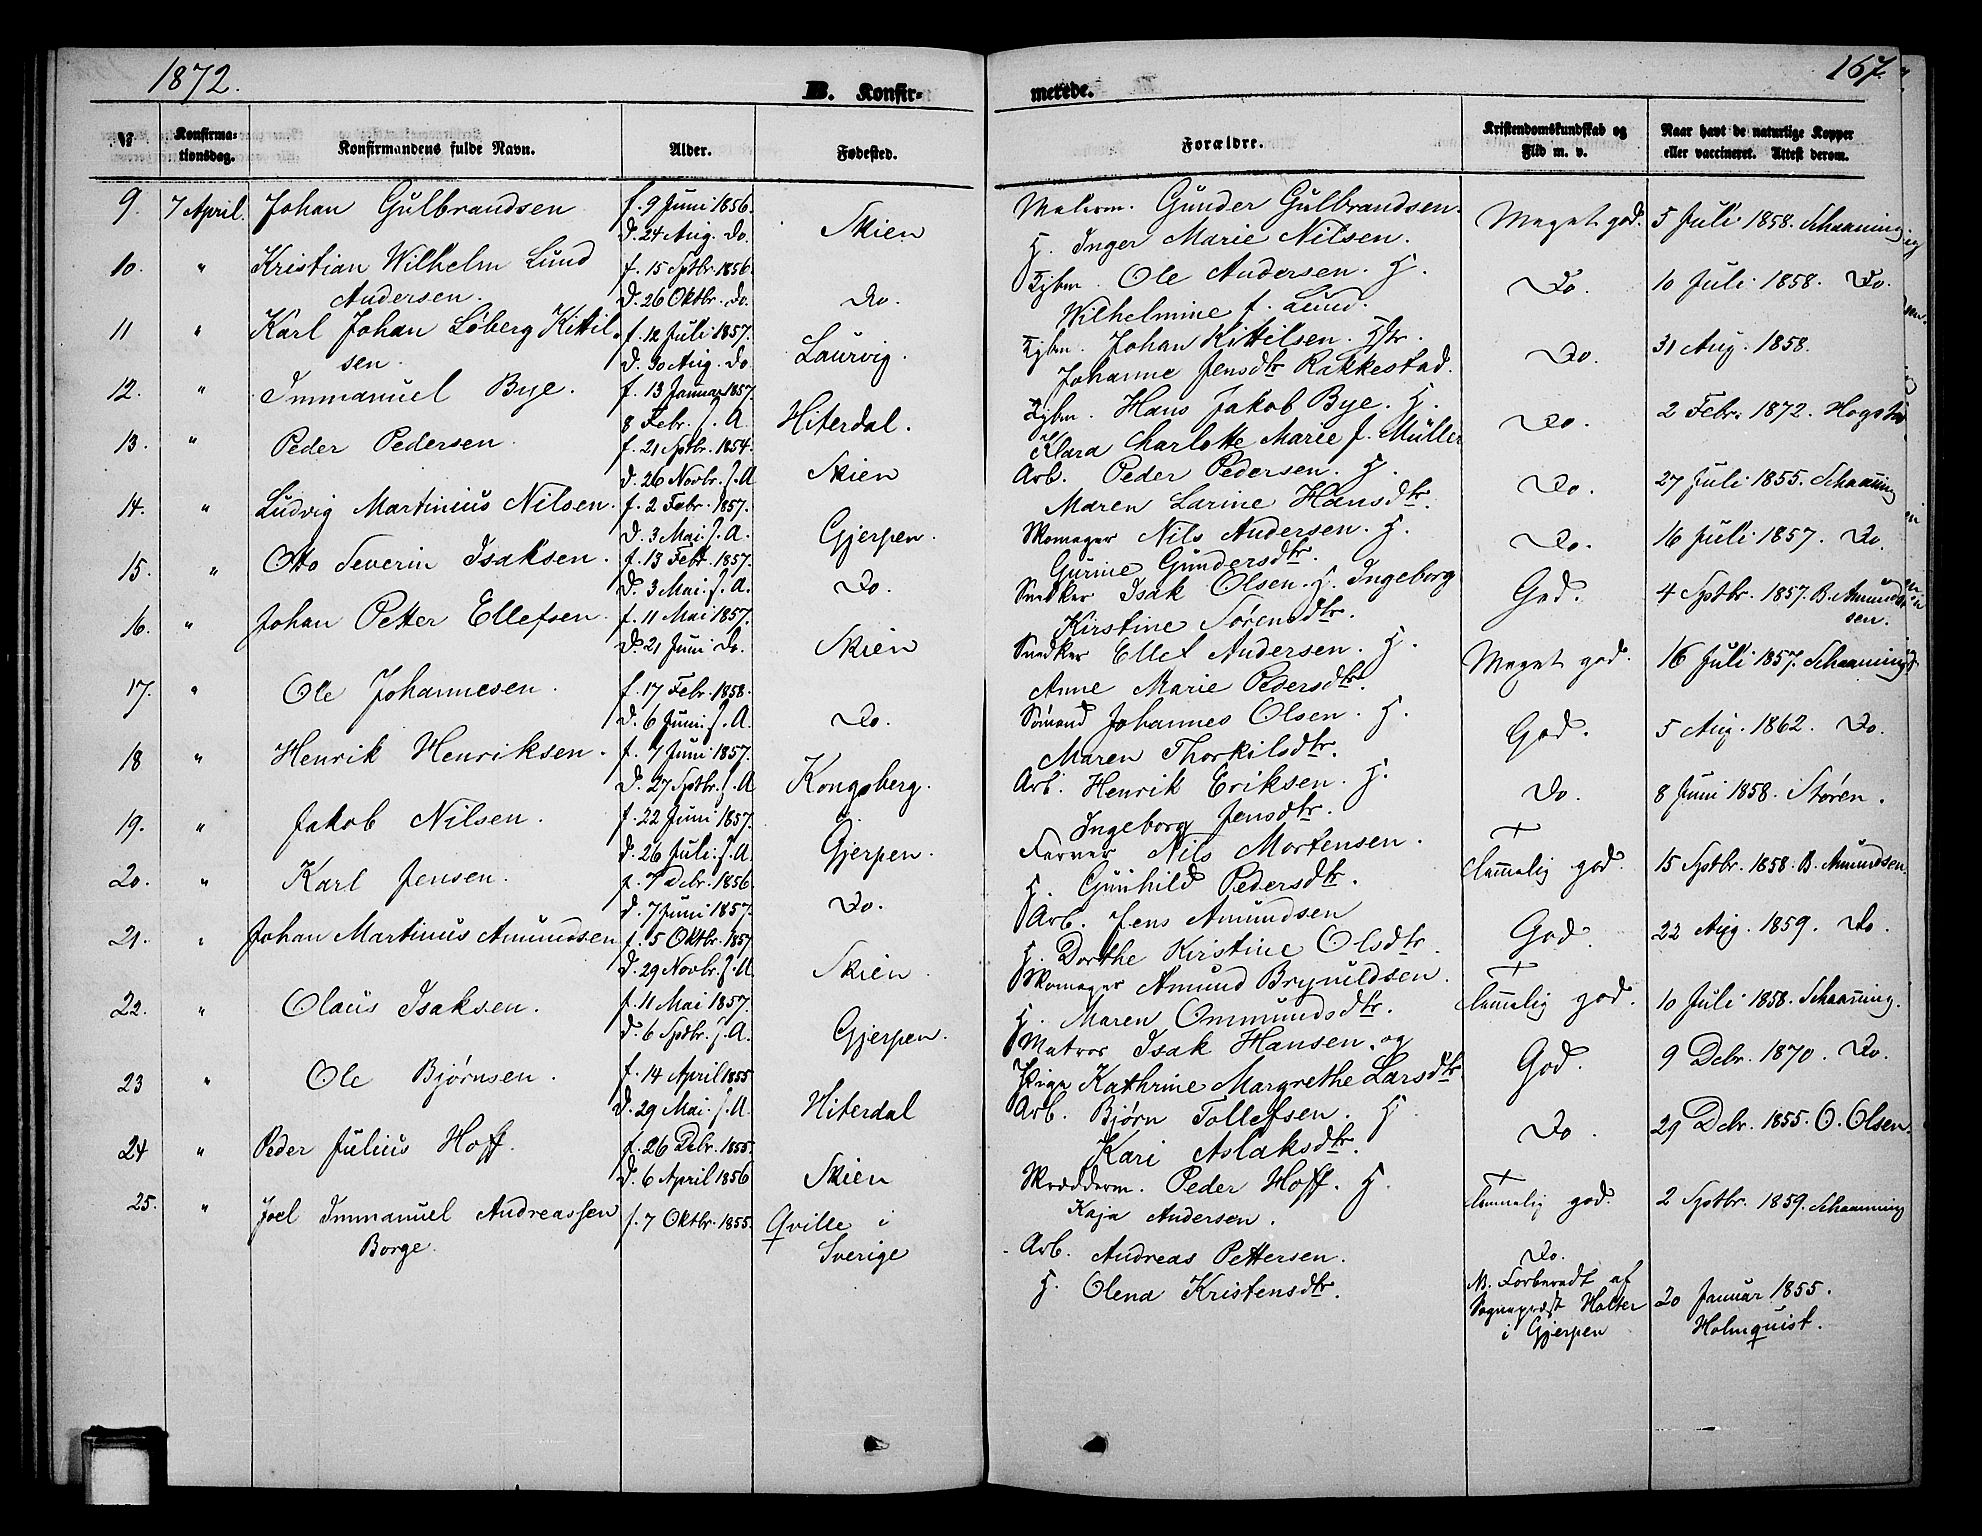 1872.
167.
B. Konfir-
merede.
№
Konfirma-
tionsdag.
Konfirmandens fulde Navn.
Alder.
Fødested.
Forældre.
Kristendomskundskab og
Flid m. v.
Naar havt de naturlige Kopper
eller vaccineret. Attest derom.
9. 7 April. Johan Gulbrandsen f. 9 Juni 1856. Skien Gunder Gulbrandsen. Meget god. 5 Juli 1858. Schaanning
D. 24 Aug. Do. H. Inger Marie Nilsen.
10. " Kristian Wilhelm Lund f. 15 Sptbr. 1856. Do. Ole Andersen. H. Do. 10 Juli 1858. Do.
Andersen. D. 26 Oktbr. Do. Wilhelmine f. Lund.
11 " Karl Johan Løberg Kittil- f. 12 Juli 1857. Laurvig. Johan Kittilsen. Do. 31 Aug. 1858.
sen. D. 30 Aug. Do Johanne Jensdtr Rakkestad.
12. " Immanuel Bye. f. 13 Januar 1857. Hiterdal. Hans Jakob Bye. H. Do. 2 Febr. 1872.
8 Febr. s. A. Klara Charlotte Marie f. Müller
13. " Peder Pedersen. f. 21 Sptbr. 1854. Skien Arb. Peder Pedersen. H. Do. 27 Juli 1855. Schaanning
D. 26 Novbr. s. A Maren Larine Hansdtr.
14. " Ludvig Martinius Nilsen. f. 2 Febr. 1857. Gjerpen. Skomager Nils Andersen. H. Do. 16 Juli 1857. Do.
D. 3 Mai. s. A. Gurine Gundersdtr.
15. " Otto Severin Isaksen. f. 13 Febr. 1857. Do. Snedker Isak Olsen. H. Ingeborg God. 4 Sptbr. 1857. B. Amund-
D. 3 Mai. s. A. Kirstine Sørensdtr. sen.
16. " Johan Petter Ellefsen. f. 11 Mai 1857. Skien Snedker Ellef Andersen. H. Meget god. 16 Juli 1857. Schaanning
D. 21 Juni Do. Anne Marie Pedersdtr.
17. " Ole Johannesen. f. 17 Febr. 1858. Do. Sömand Johannes Olsen. H. God. 5 Aug. 1862. Do.
D. 6 Juni. s. A. Maren Thorkilsdtr.
18 " Henrik Henriksen. f. 7 Juni 1857. Kongsberg. Arb. Henrik Eriksen. H. Do. 8 Juni 1858. Støren.
D. 27 Sptbr. s. A Ingeborg Jensdtr.
19. " Jakob Nilsen. f. 22 Juni 1857. Gjerpen. Farver Nils Mortensen. Tammelig god. 15 Sptbr. 1858. B. Amundsen.
D. 26 Juli. s. A. H. Gunhild Pedersdtr.
20. " Karl Jensen. f. 7 Debr. 1856. Do. Arb. Jens Amundsen God. 22 Aug. 1859. Do.
D. 7 Juni 1857. H. Dorthe Kirstine Olsdtr.
21. " Johan Martinus Amundsen f. 5 Oktbr. 1857 Skien. Skomager Amund Brynuldsen. Tammelig god. 10 Juli 1858. Schaanning.
D. 29 Novbr. s. A. H. Maren Ommundsdtr.
22. " Olaus Isaksen. f. 11 Mai 1857. Gjerpen. Matros Isak Hansen. og God. 9 Debr. 1870. Do.
D. 6 Sptbr. s. A. Pige Kathrine Margrethe Larsdtr
23 " Ole Bjørnsen. f. 14 April 1855 Hiterdal Arb. Bjørn Tollefsen. H Do. 29 Debr. 1855. O. Olsen.
D. 29 Mai. s. A. Kari Aslaksdtr.
24 " Peder Julius Hoff. f. 26 Debr. 1855. Skien Skrædderm. Peder Hoff. H. Tammelig god. 2 Sptbr. 1859. Schaanning
D. 6 April 1856 Kaja Andersen.
25. " Joel Immanuel Andreassen f. 7 Oktbr. 1855. Qville i Arb. Andreas Pettersen. Do.
Borge. Sverige H. Olena Kristensdtr. NB. Forberedt af
Sogneprest Halter 20 Januar 1855.
i Gjerpen Holmquist.